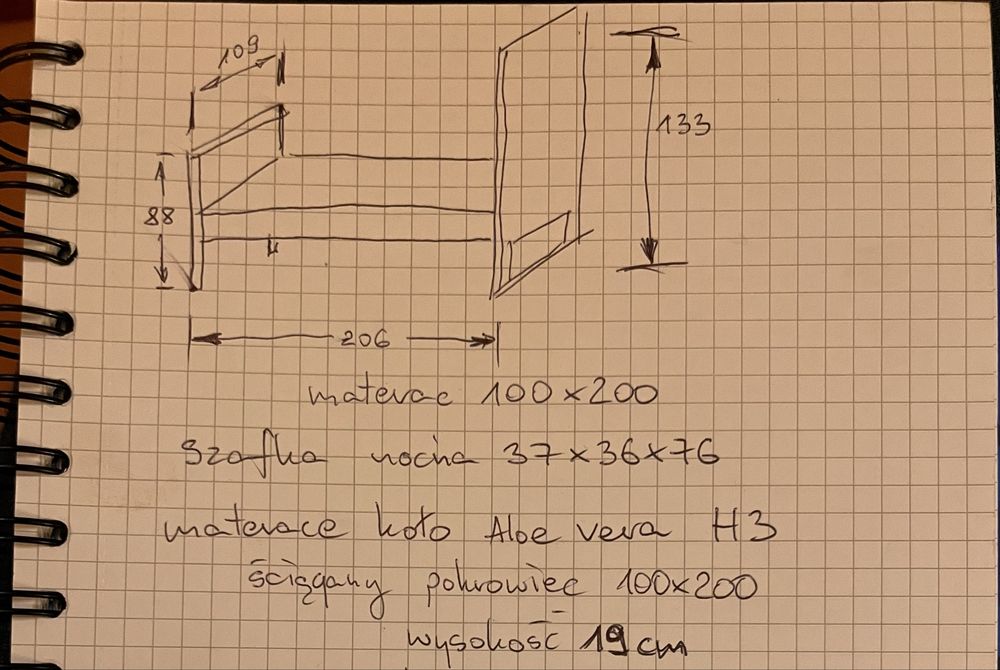 109
133
88
206
materac 100x200
Szafka nocna 37x36x76
materace koło Aloe vera H3
ściągany pokrowiec 100x200
wysokość 19 cm